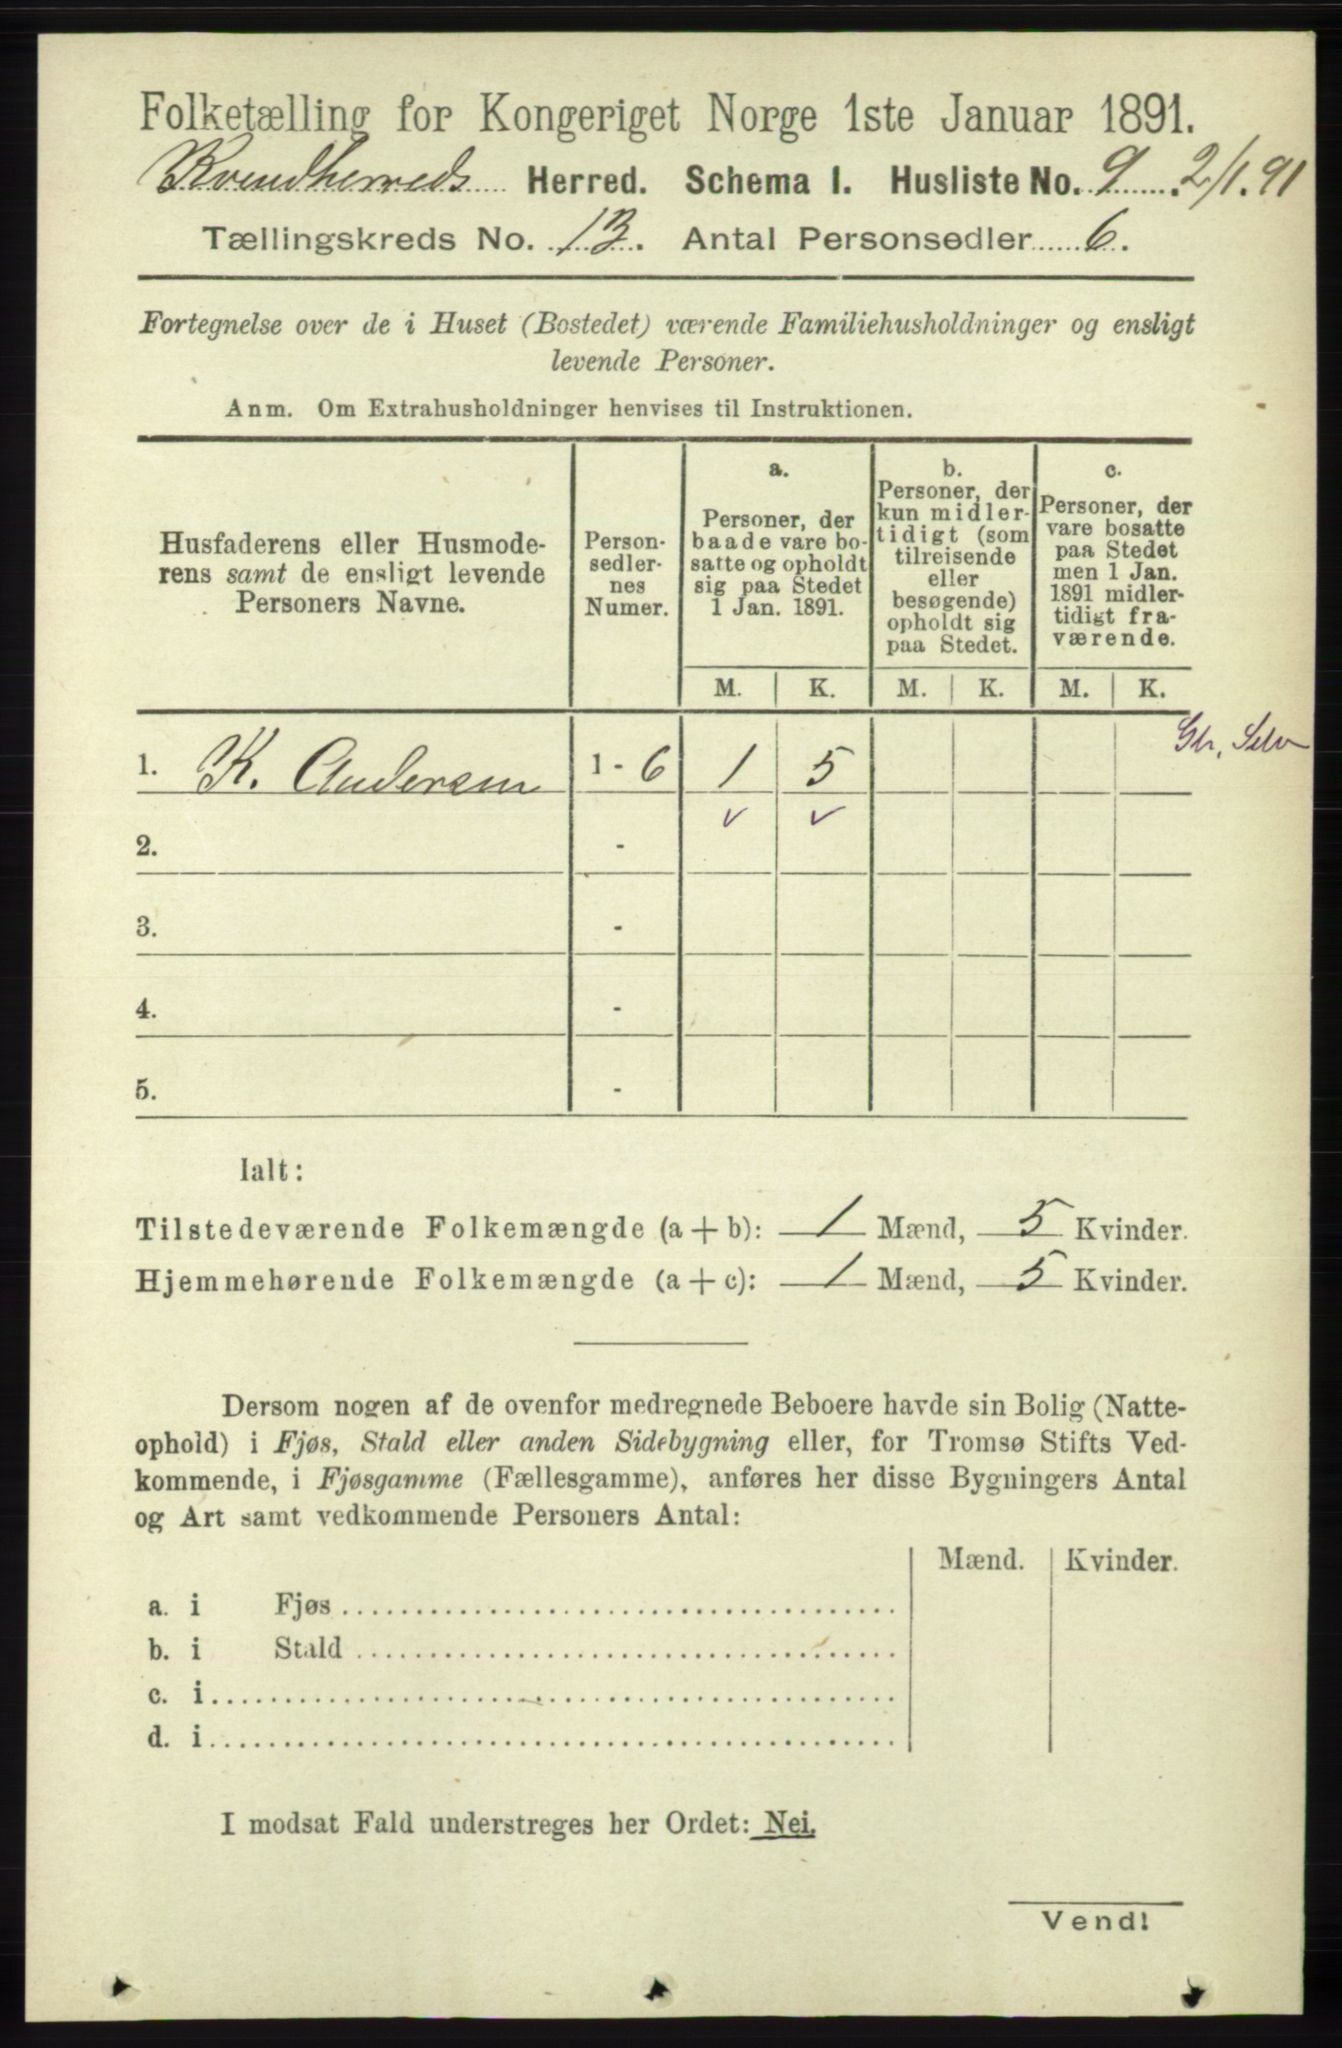 Folketælling for Kongeriget Norge 1ste Januar 1891.
Kvendherreds Herred. Schema I. Husliste No. 9 2/1.91
Tællingskreds No. 13. Antal Personsedler 6.
Fortegnelse over de i Huset (Bostedet) værende Familiehusholdninger og ensligt
levende Personer.
Anm. Om Extrahusholdninger henvises til Instruktionen.
Husfaderens eller Husmode-
rens samt de ensligt levende
Personers Navne.
Person-
sedler-
nes
Numer.
a.
Personer, der
baade vare bo-
satte og opholdt
sig paa Stedet
1 Jan. 1891.
b.
Personer, der
kun midler-
tidigt (som
tilreisende
eller
besøgende)
opholdt sig
paa Stedet.
c.
Personer, der
vare bosatte
paa Stedet
men 1 Jan.
1891 midler-
tidigt fra-
værende.
M. K. M. K. M. K.
Selv
1. K. Andersen 1 - 6 1 5
2. -
3. -
4. -
5. -
Ialt:
Tilstedeværende Folkemængde (a + b): 1 Mænd, 5 Kvinder.
Hjemmehørende Folkemængde (a + c): 1 Mænd, 5 Kvinder.
Dersom nogen af de ovenfor medregnede Beboere havde sin Bolig (Natte-
ophold) i Fjøs, Stald eller anden Sidebygning eller, for Tromsø Stifts Ved-
kommende, i Fjøsgamme (Fællesgamme), anføres her disse Bygningers Antal
og Art samt vedkommende Personers Antal:
Mænd. Kvinder.
a. i Fjøs
b. i Stald
c. i
d. i
I modsat Fald understreges her Ordet: Nei.
Vend!